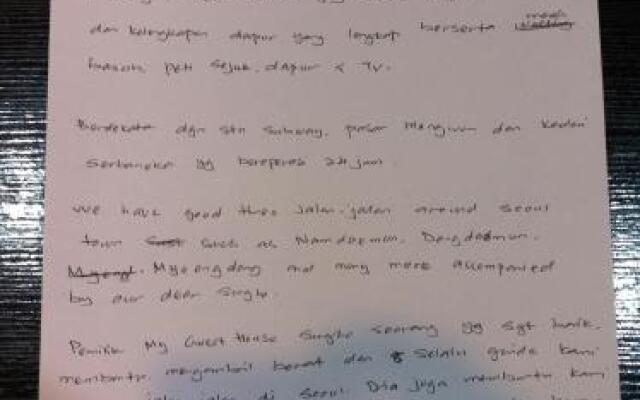 dan kelengkapan dapur yang lengkap berserta mesin
basuh, peti sejuk, dapur & TV.
Berdekatan dgn stn subway, pasar Mangwon dan kedai
serbaneka yg beroperasi 24 jam.
We have good time jalan-jalan around Seoul
town such as Namdaemun, Dongdaemun,
Myeongdong and many more accompanied
by our dear Sungho.
Pemilik My Guest House Sungho seorang yg sgt baik,
membantu mengambil berat dan selalu guide kami
jalan-jalan di Seoul. Dia juga membantu kami